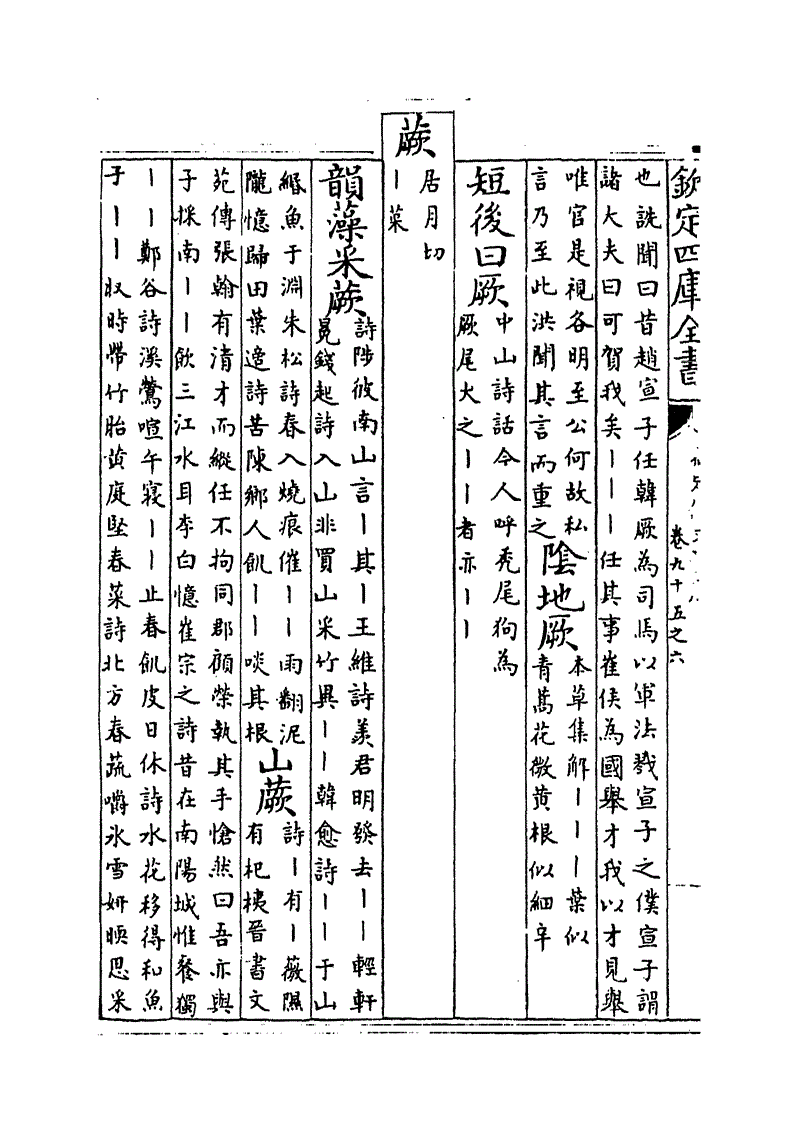 欽定四庫全書
卷九十五之六
也詵聞曰昔趙宣子任韓厥為司馬以軍法戮宣子之僕宣子謂
諸大夫曰可賀我矣丨丨丨任其事崔侯為國舉才我以才見舉
唯官是視各明至公何故私
言乃至此洪聞其言而重之
陰地厥
本草集解丨丨丨葉似
青蒿花微黄根似細辛
短後曰厥
中山詩話今人呼禿尾狗為
厥尾大之丨丨者亦丨丨
蕨
居月切
丨菜
韻藻采蕨
詩陟彼南山言丨其丨王維詩羨君明發去丨丨輕軒
冕錢起詩入山非買山采竹異丨丨韓愈詩丨丨于山
緡魚于淵朱松詩春入燒痕催丨丨雨翻泥
隴憶歸田葉適詩苦陳鄉人飢丨丨啖其根
山蕨
詩丨有丨薇隰
有杞桋晉書文
苑傳張翰有清才而縱任不拘同郡顧榮執其手愴然曰吾亦與
子採南丨丨飲三江水耳李白憶崔宗之詩昔在南陽城惟餐獨
丨丨鄭谷詩溪鶯喧午寢丨丨止春飢皮日休詩水花移得和魚
子丨丨收時帶竹胎黄庭堅春菜詩北方春蔬嚼氷雪妍暎思采